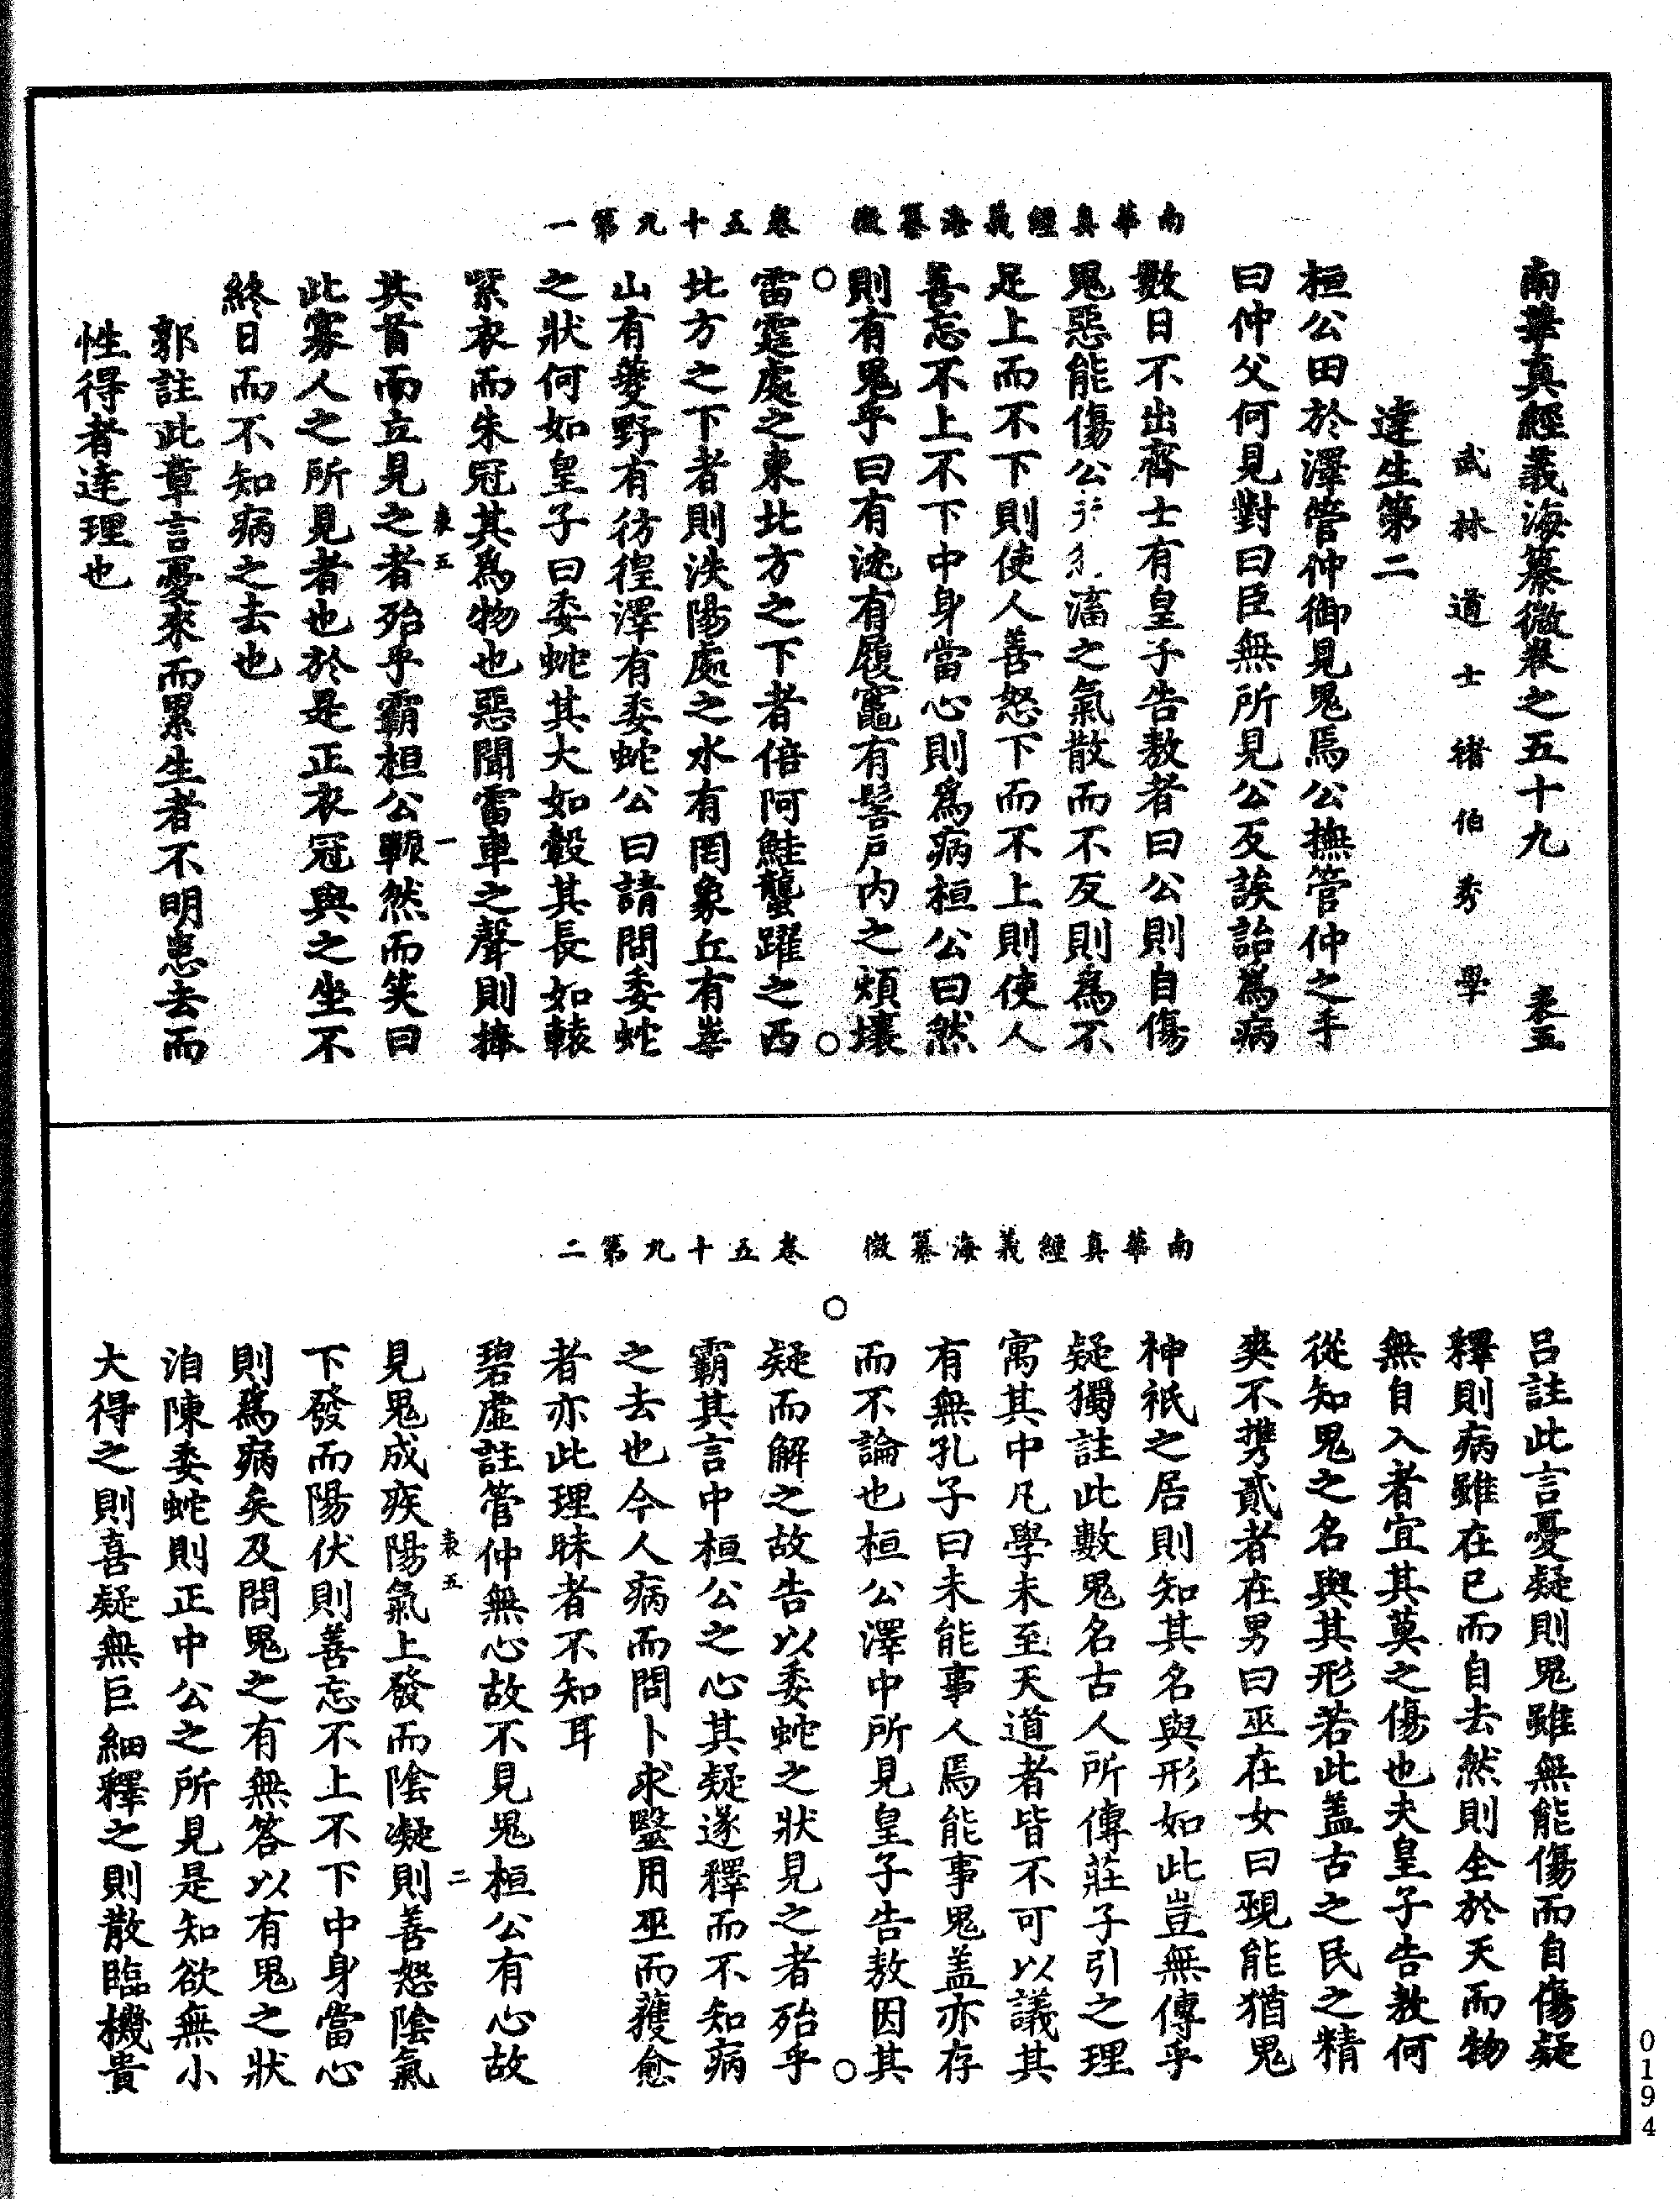 南華真經義海纂微卷之五十九　表五
武林道士褚伯秀學
達生第二
桓公田於澤管仲御見鬼焉公撫管仲之手
曰仲父何見對曰臣無所見公反誒詒為病
數日不出齊士有皇子告敖者曰公則自傷
鬼惡能傷公滀之氣散而不反則為不
足上而不下則使人善怒下而不上則使人
善忘不上不下中身當心則為病桓公曰然
則有鬼乎曰有沈有履竈有髻戶內之煩壤
南華真經義海纂微　卷五十九第一
雷霆處之東北方之下者倍阿鮭蠪躍之西
北方之下者則泆陽處之水有罔象丘有峷
山有夔野有彷徨澤有委蛇公曰請問委蛇
之狀何如皇子曰委蛇其大如轂其長如轅
紫衣而朱冠其為物也惡聞雷車之聲則捧
表五　一
其首而立見之者殆乎霸桓公囅然而笑曰
此寡人之所見者也於是正衣冠與之坐不
終日而不知病之去也
郭註此章言憂來而累生者不明患去而
性得者達理也
吕註此言憂疑則鬼雖無能傷而自傷疑
釋則病雖在已而自去然則全於天而物
無自入者宜其莫之傷也夫皇子告敖何
從知鬼之名與其形若此盖古之民之精
爽不攜貳者在男曰巫在女曰覡能猶鬼
神祇之居則知其名與形如此豈無傳乎
疑獨註此數鬼名古人所傳莊子引之理
寓其中凡學未至天道者皆不可以議其
有無孔子曰未能事人焉能事鬼盖亦存
而不論也桓公澤中所見皇子告敖因其
南華真經義海纂微　卷五十九第二
疑而解之故告以委蛇之狀見之者殆乎
霸其言中桓公之心其疑遂釋而不知病
之去也今人病而問卜求毉用巫而獲愈
者亦此理昧者不知耳
碧虛註管仲無心故不見鬼桓公有心故
表五　二
見鬼成疾陽氣上發而陰凝則善怒陰氣
下發而陽伏則善忘不上不下中身當心
則為病矣及問鬼之有無答以有鬼之狀
洎陳委蛇則正中公之所見是知欲無小
大得之則喜疑無巨細釋之則散臨機貴
0194